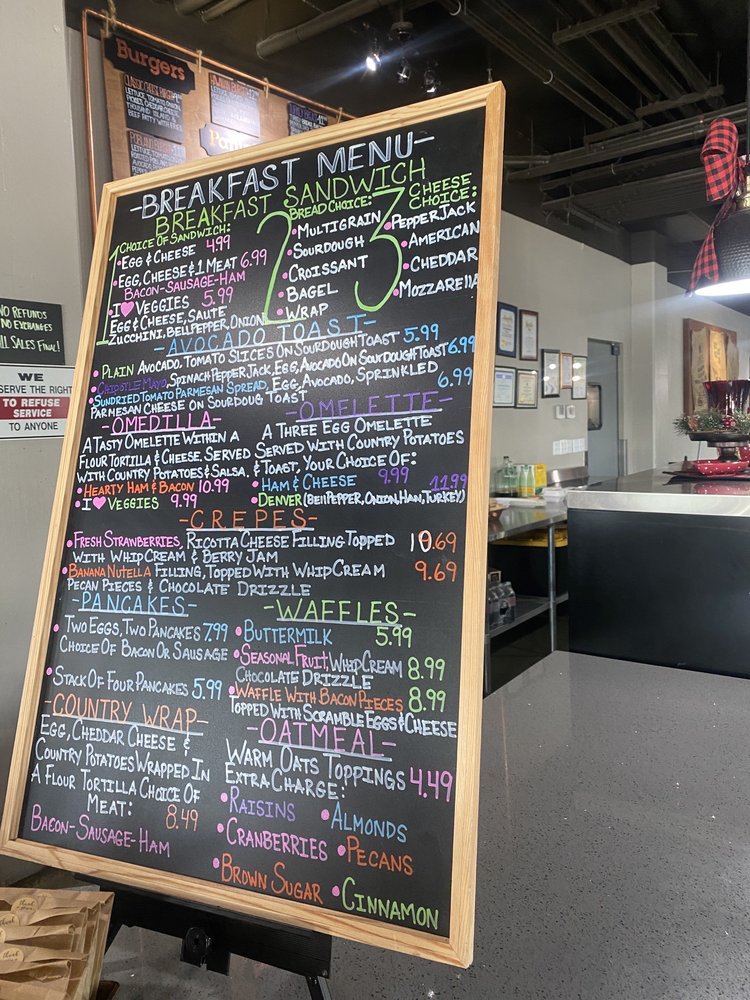 Burgers
NO REFUNDS
NO EXCHANGES
ALL SALES Final!
WE
RESERVE THE RIGHT
TO REFUSE
SERVICE
TO ANYONE
-BREAKFAST MENU-
BREAKFAST SANDWICH
1 CHOICE OF SANDWICH:
•EGG & CHEESE 4.99
•EGG, CHEESE & 1 MEAT 6.99
BACON-SAUSAGE-HAM
•I ♥ VEGGIES 5.99
EGG & CHEESE, SAUTE
ZUCCHINI, BELLPEPPER, ONION
2 BREAD CHOICE:
•MULTIGRAIN
•SOURDOUGH
•CROISSANT
•BAGEL
•WRAP
3 CHEESE
CHOICE:
•PEPPERJACK
•AMERICAN
•CHEDDAR
•MOZZARELLA
-AVOCADO TOAST-
•PLAIN AVOCADO, TOMATO SLICES ON SOURDOUGH TOAST 5.99
•CHIPOTLE MAYO, SPINACH PEPPER JACK, EGG, AVOCADO ON SOURDOUGH TOAST 6.99
•SUNDRIED TOMATO PARMESAN SPREAD, EGG, AVOCADO, SPRINKLED 6.99
PARMESAN CHEESE ON SOURDOUG TOAST
-OMEDILLA-
A TASTY OMELETTE WITHIN A
FLOUR TORTILLA & CHEESE, SERVED
WITH COUNTRY POTATOES & SALSA.
•HEARTY HAM & BACON 10.99
•I ♥ VEGGIES 9.99
-OMELETTE-
A THREE EGG OMELETTE
SERVED WITH COUNTRY POTATOES
& TOAST, YOUR CHOICE OF:
•HAM & CHEESE 9.99
11.99
•DENVER (BELLPEPPER, ONION, HAM, TURKEY)
-CREPES-
•FRESH STRAWBERRIES, RICOTTA CHEESE FILLING TOPPED 10.69
WITH WHIP CREAM & BERRY JAM
•BANANA NUTELLA FILLING, TOPPED WITH WHIP CREAM 9.69
PECAN PIECES & CHOCOLATE DRIZZLE
-PANCAKES-
•TWO EGGS, TWO PANCAKES 7.99
CHOICE OF BACON OR SAUSAGE
•STACK OF FOUR PANCAKES 5.99
-WAFFLES-
•BUTTERMILK 5.99
•SEASONAL FRUIT, WHIP CREAM 8.99
CHOCOLATE DRIZZLE
•WAFFLE WITH BACON PIECES 8.99
TOPPED WITH SCRAMBLE EGGS & CHEESE
-COUNTRY WRAP-
EGG, CHEDDAR CHEESE &
COUNTRY POTATOES WRAPPED IN
A FLOUR TORTILLA CHOICE OF
MEAT: 8.49
BACON-SAUSAGE-HAM
-OATMEAL-
WARM OATS TOPPINGS 4.49
EXTRA CHARGE:
•RAISINS •ALMONDS
•CRANBERRIES •PECANS
•BROWN SUGAR •CINNAMON